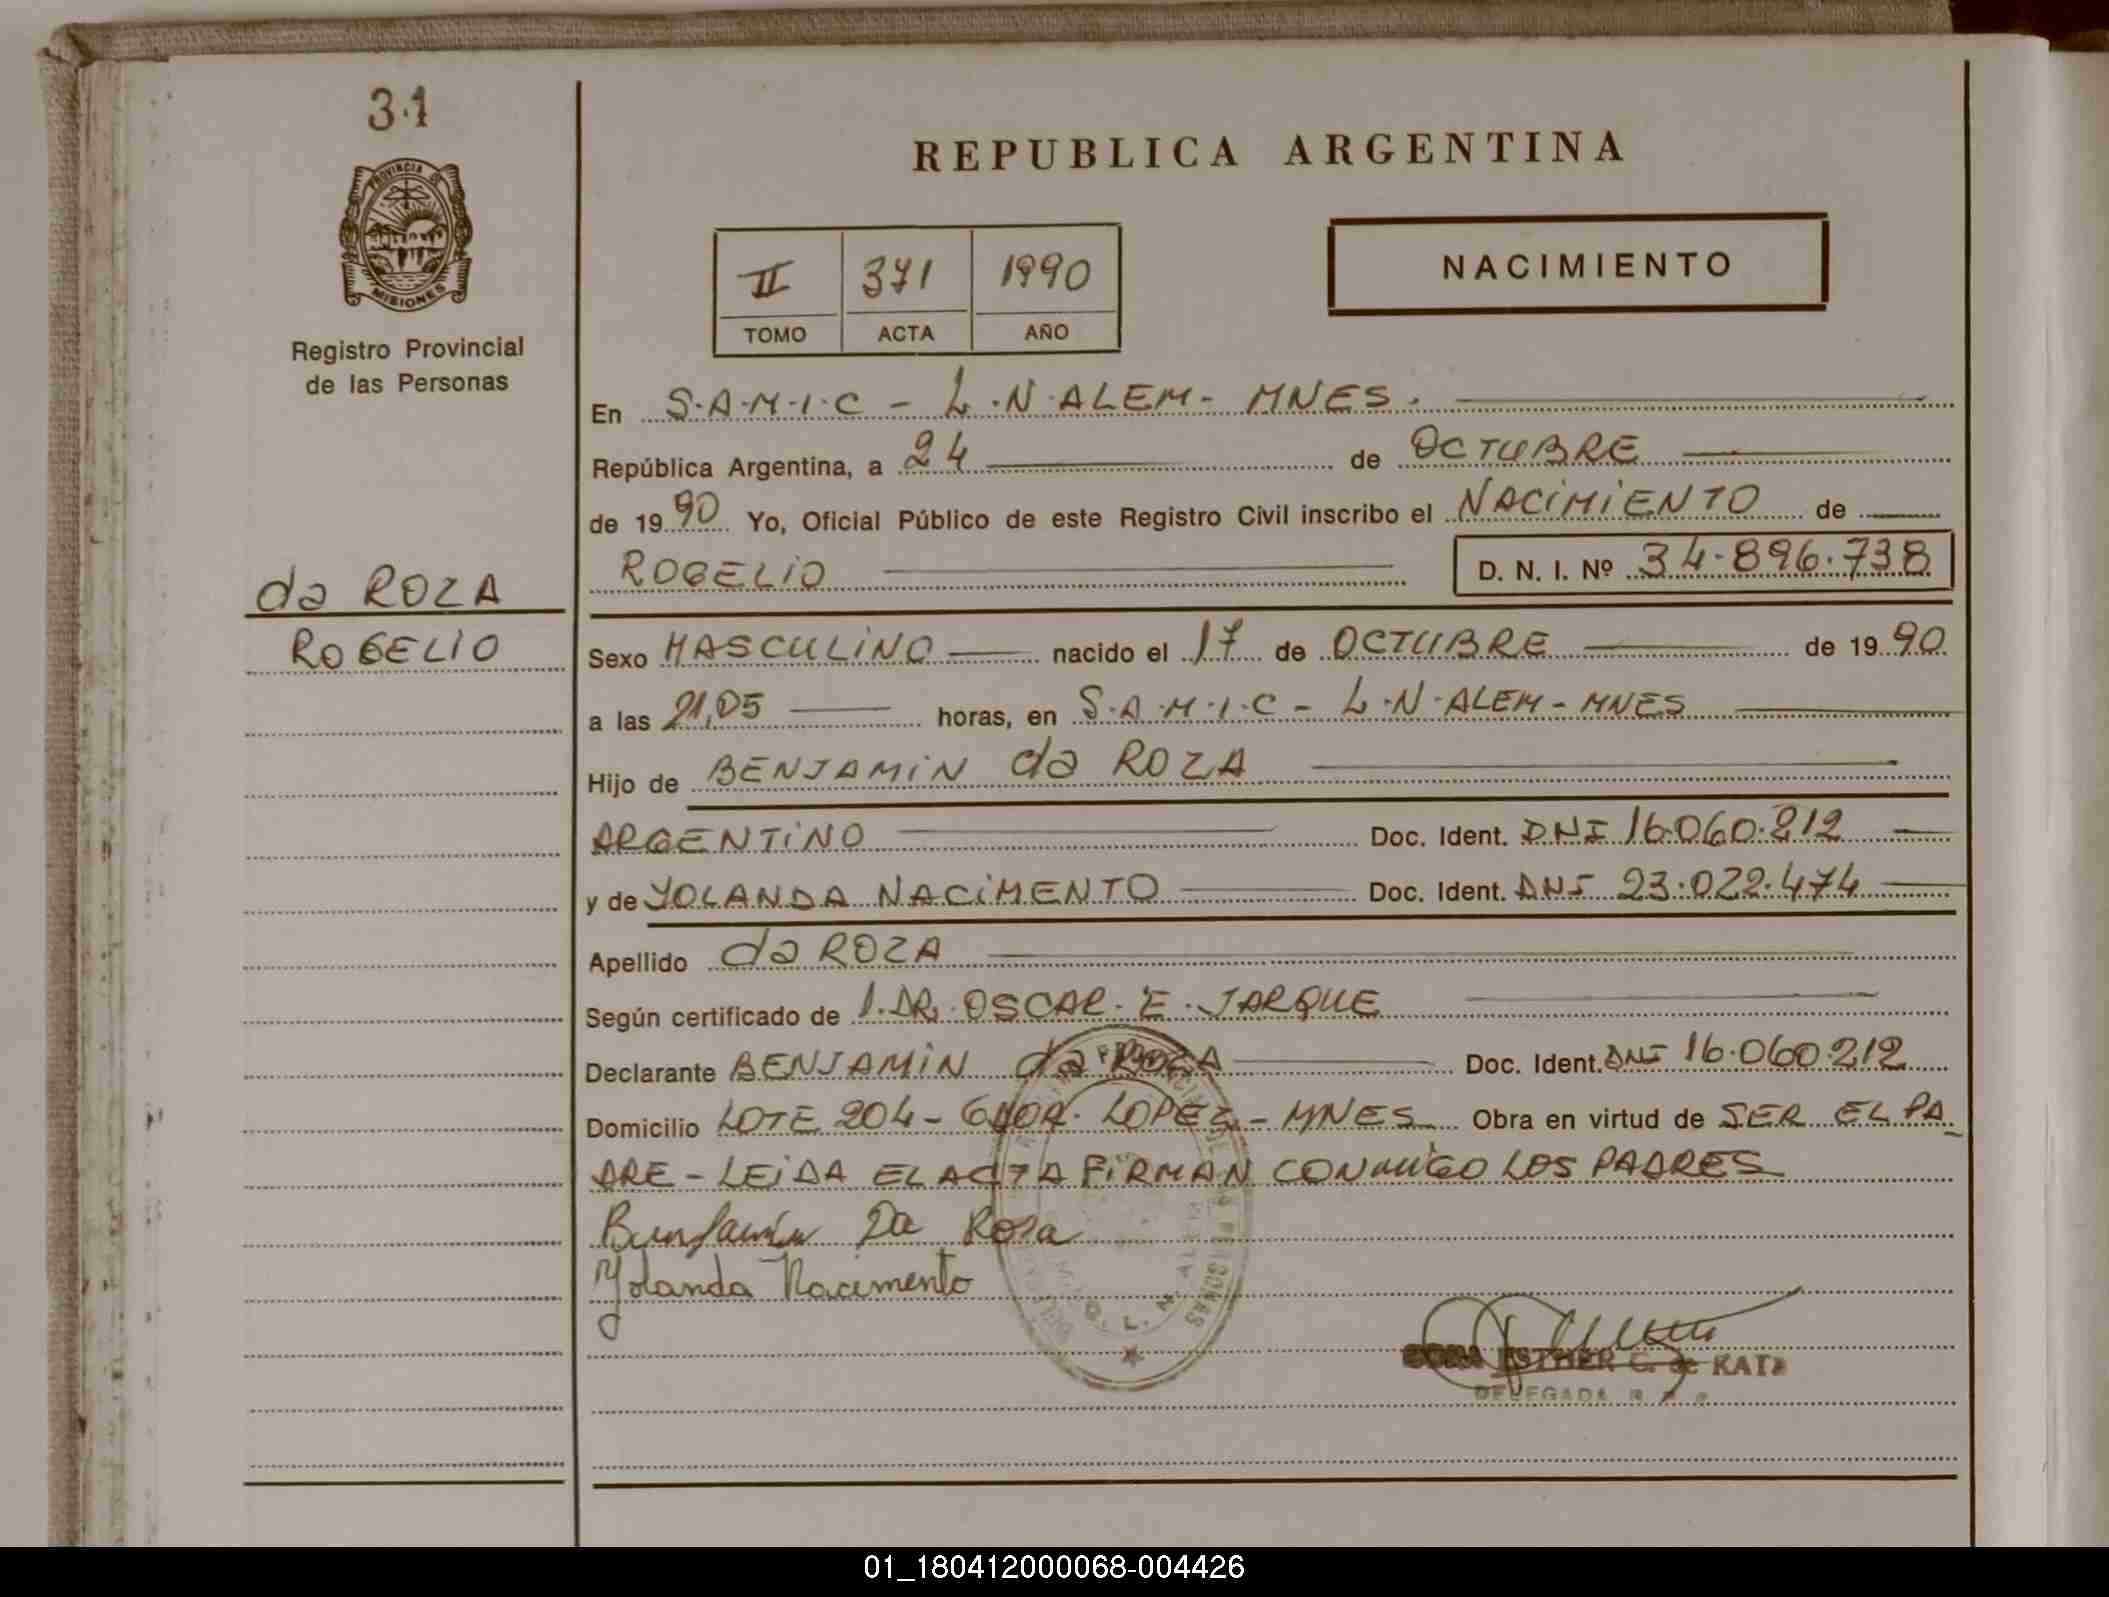 31
PROVINCIA DE
MISIONES
Registro Provincial
de las Personas
da ROZA
ROGELIO
REPUBLICA ARGENTINA
II 371 1990
TOMO ACTA AÑO
NACIMIENTO
En S.A.M.I.C - L.N.ALEM - MNES.
República Argentina, a 24 de OCTUBRE
de 1990 Yo, Oficial Público de este Registro Civil inscribo el NACIMIENTO de
ROGELIO D. N. I. Nº 34.896.738
Sexo MASCULINO nacido el 17 de OCTUBRE de 1990
a las 21,05 horas, en S.A.M.I.C - L.N.ALEM - MNES
Hijo de BENJAMIN da ROZA
ARGENTINO Doc. Ident. DNI 16.060.212
y de YOLANDA NACIMENTO Doc. Ident. DNI 23.022.474
Apellido da ROZA
Según certificado de 1.DR.OSCAR.E.JARQUE
Declarante BENJAMIN da ROZA Doc. Ident. DNI 16.060.212
Domicilio LOTE 204 - GDOR. LOPEZ - MNES Obra en virtud de SER EL PA
DRE - LEIDA EL ACTA FIRMAN CONMIGO LOS PADRES
Benjamin Da Rosa
Yolanda Nacimento
ESTHER C. de KATZ
DELEGADA R. P. P.
01_180412000068-004426